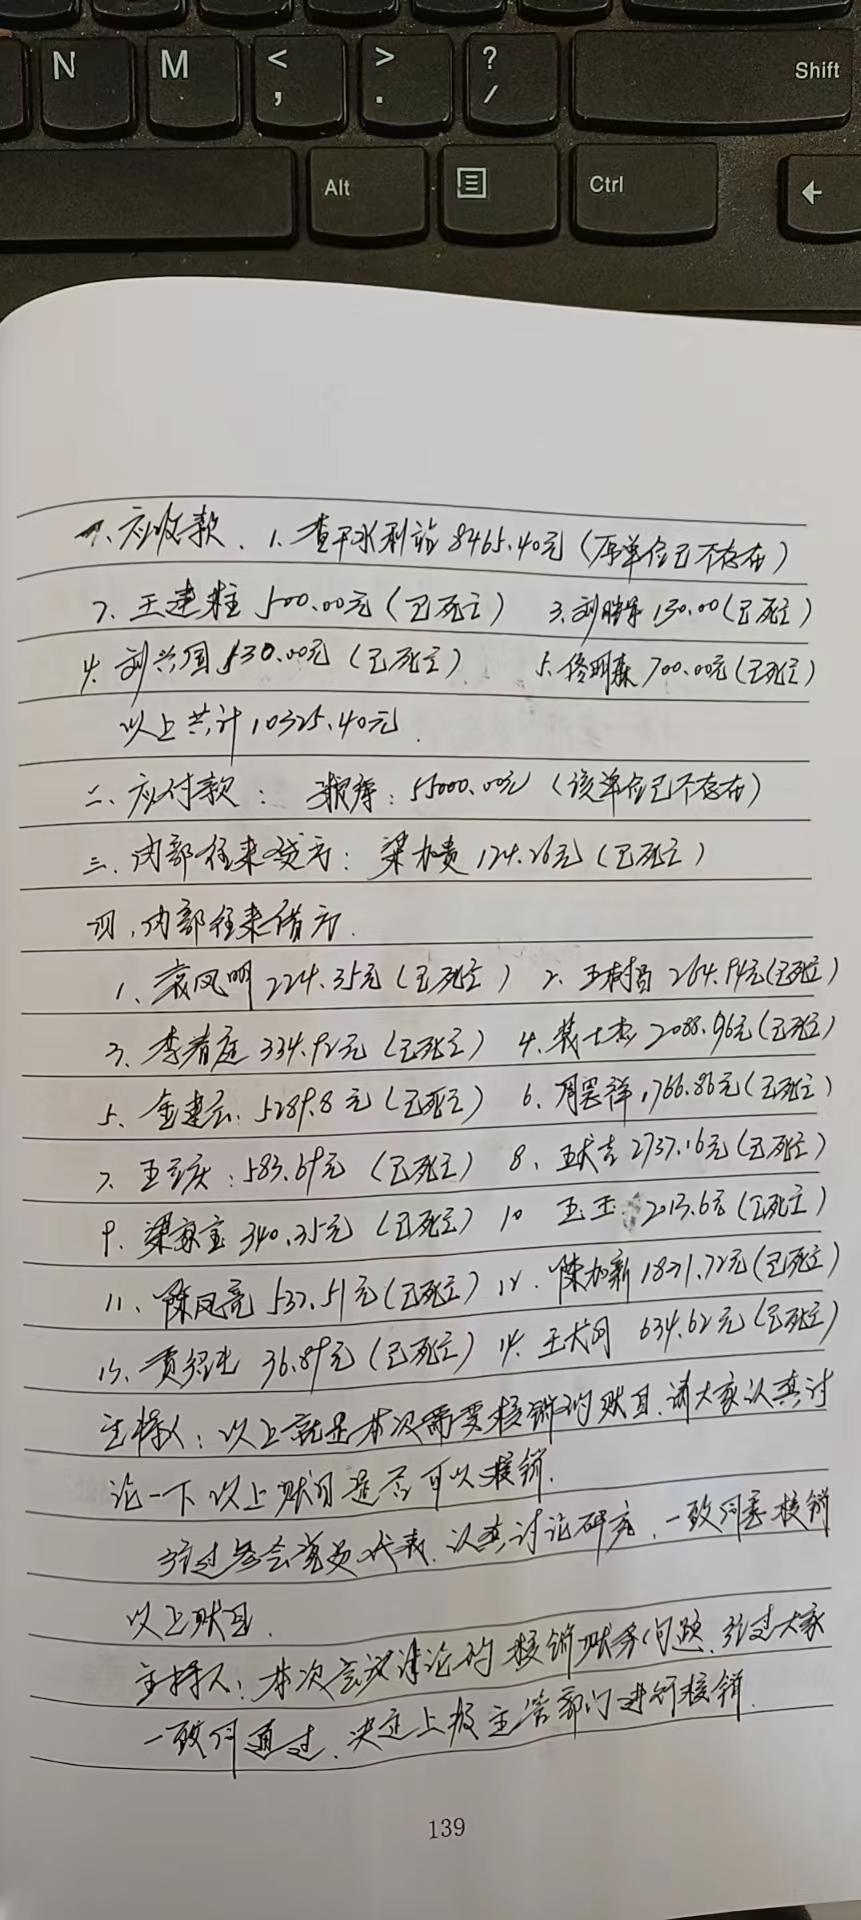 N M < , > . ? / Shift
Alt Ctrl
一、应收款、1、查干水利站 8465.40元（原单位已不存在）
2、王建柱 500.00元（已死亡） 3、刘 130.00（已死亡）
4、刘兴国 530.00元（已死亡） 5、佟明森 700.00元（已死亡）
以上共计10325.40元.
二、应付款： ：55000.00元（该单位已不存在）
三、内部往来贷方：梁加贵 124.26元（已死亡）
四、内部往来借方.
1、袁凤明 224.35元（已死亡） 2、王树 264.94元（已死亡）
3、李春庭 334.92元（已死亡） 4、2088.96元（已死亡）
5、金建云：5289.8元（已死亡） 6、周 1766.86元（已死亡）
7、王 庆：583.69元（已死亡） 8、王 吉 2737.16元（已死亡）
9、梁家宝 340.35元（已死亡） 10 王玉 2013.6元（已死亡）
11、陈凤亮 537.51元（已死亡） 12、陈加新 1821.72元（已死亡）
13、贾 36.89元（已死亡） 14、王 634.62元（已死亡）
主持人：以上就是本次需要核销的账目、请大家认真讨
论一下以上账目是否可以核销.
经过参会党员代表、认真讨论研究、一致同意核销
以上账目.
主持人：本次会议讨论的核销账务问题、经过大家
一致同通过、决定上报主管部门进行核销.
139